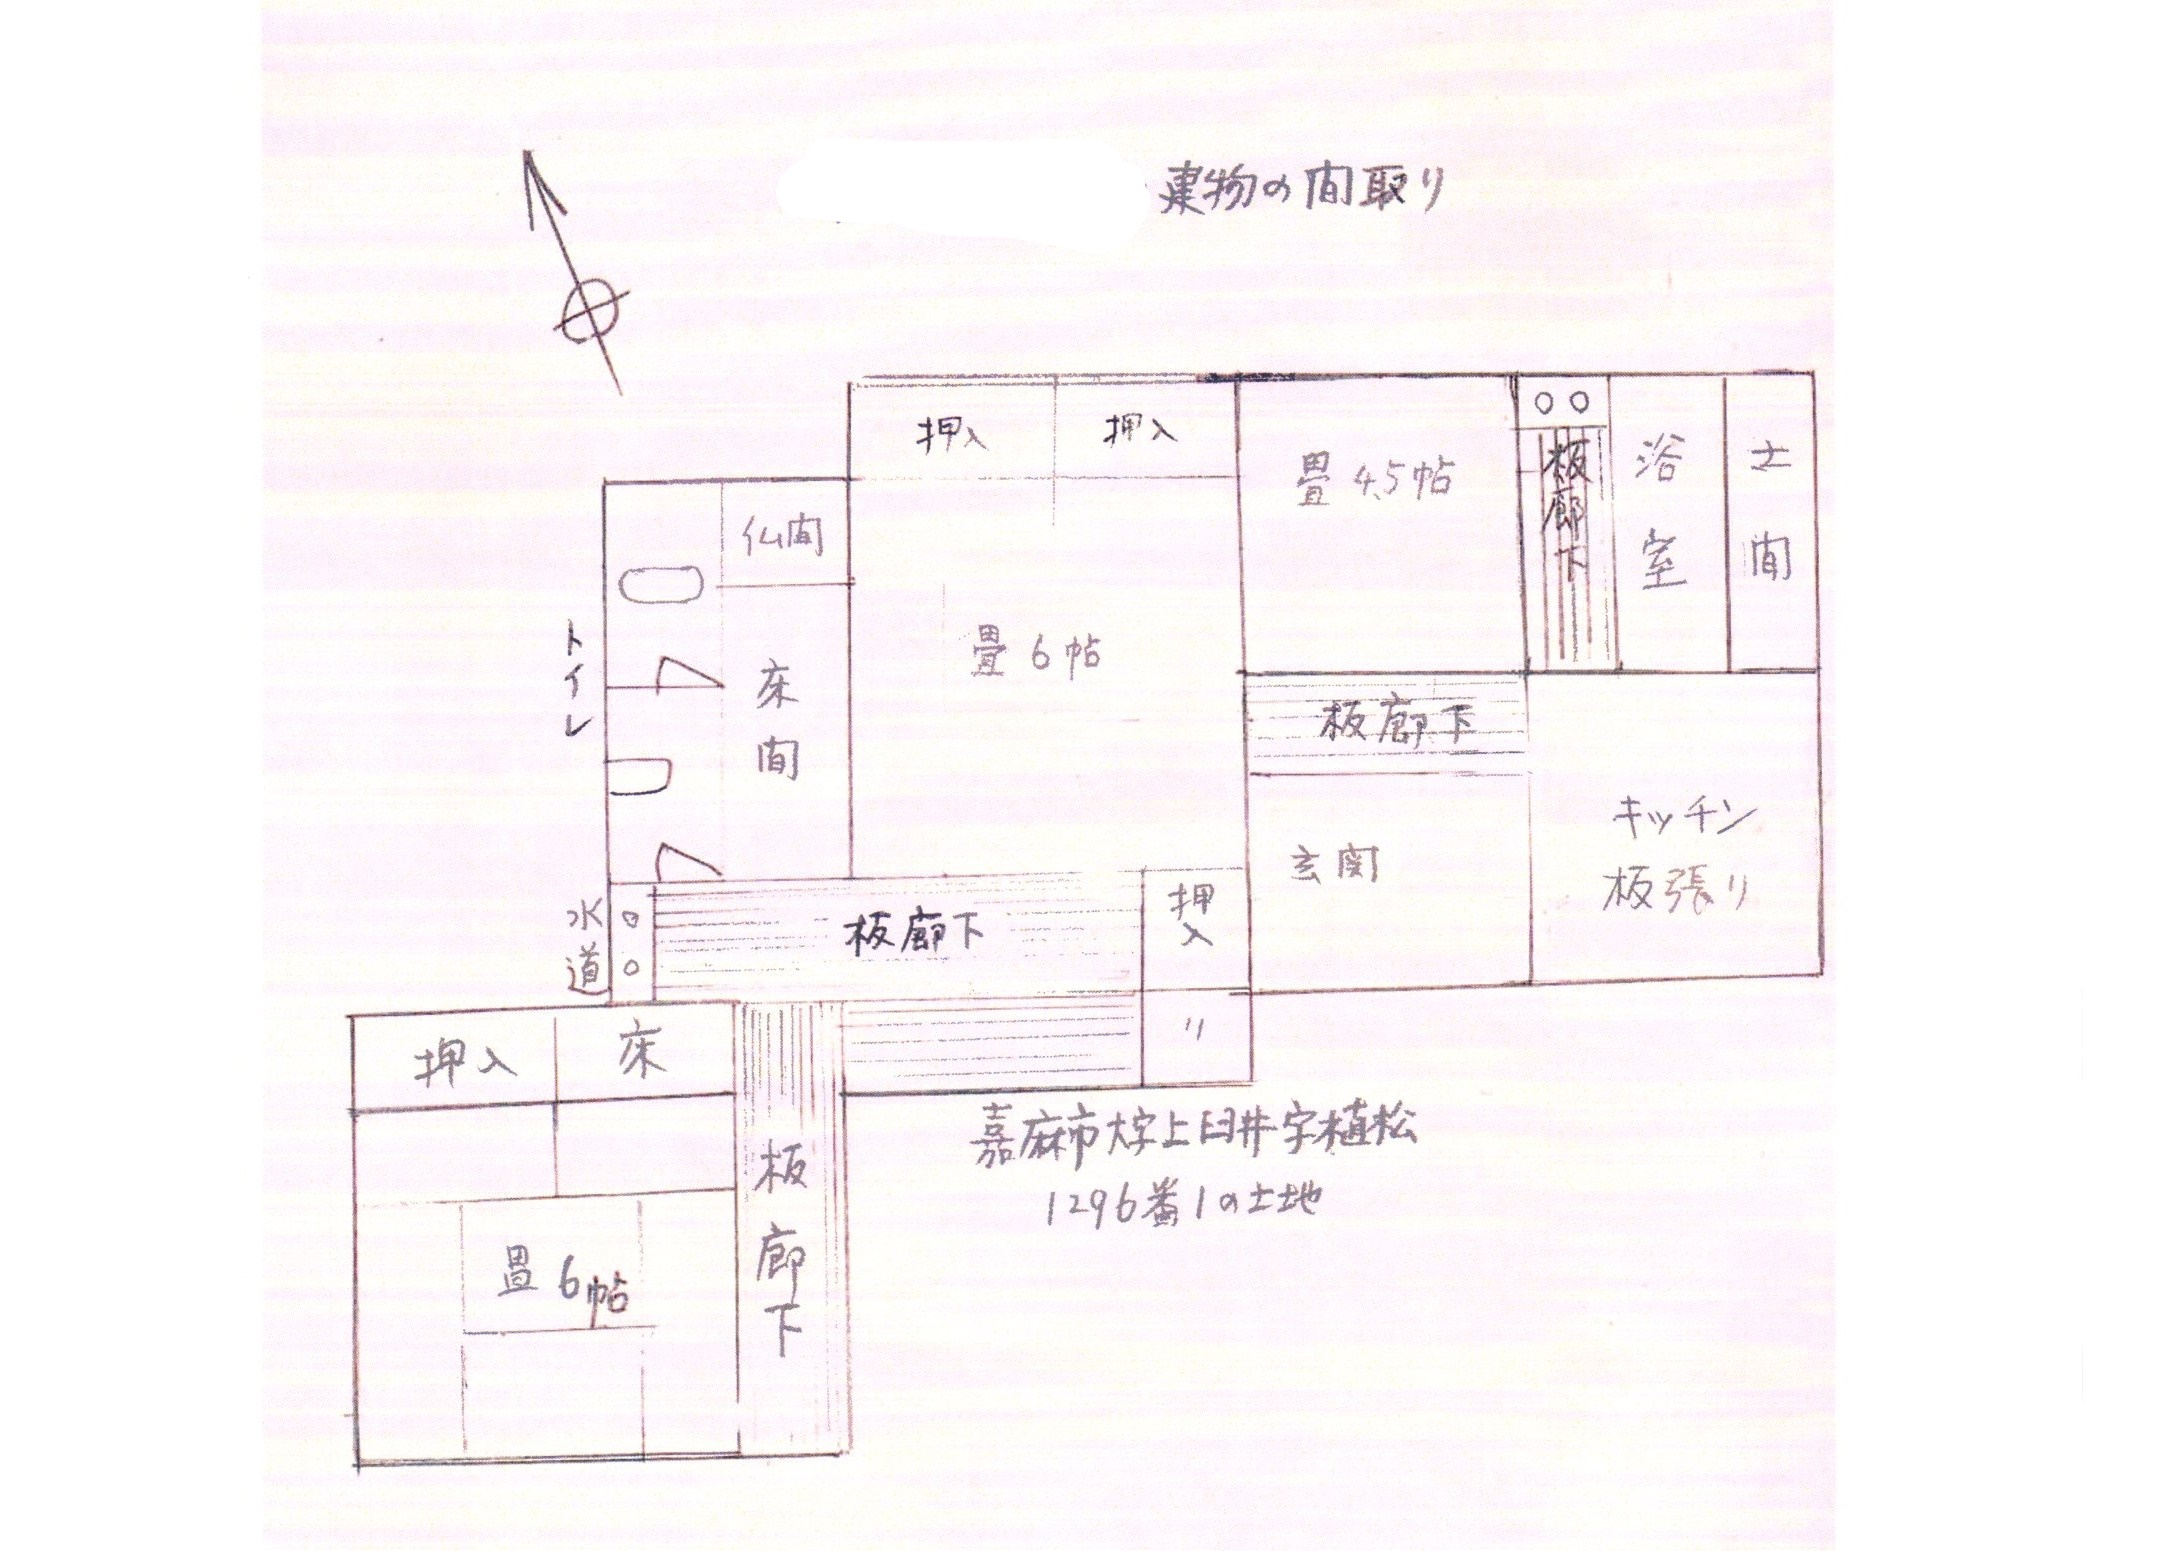 建物の間取り
押入
押入
畳 4.5帖
板廊下
浴室
土間
仏間
トイレ
床間
畳 6帖
板廊下
玄関
キッチン
板張り
水道
板廊下
押入
〃
押入
床
板廊下
畳 6帖
嘉麻市大字上臼井字植松
1296番1の土地